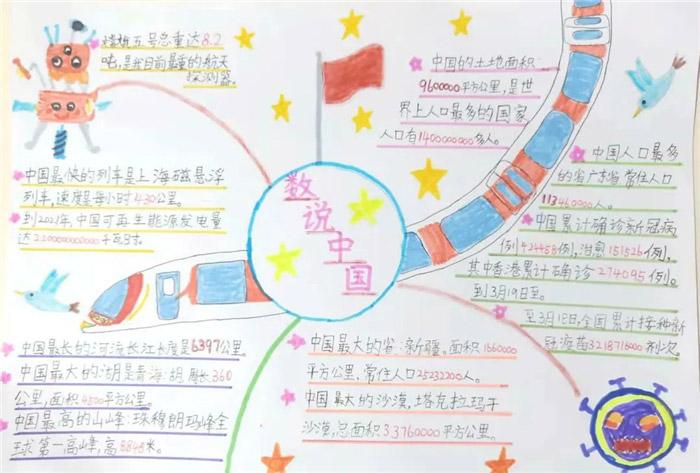 嫦娥五号总重达8.2
吨,是我目前最重的航天
探测器。
中国的土地面积
9600000平方公里,是世
界上人口最多的国家
人口有1400000000多人。
中国最快的列车是上海磁悬浮
列车,速度是每小时430公里。
到2021年,中国可再生能源发电量
达2200000000000千瓦时。
数说中国
中国人口最多
的省广东省常住人口
113460000人。
中国累计确诊新冠病
例424458例,治愈151526例,
其中香港累计确诊274095例。
到3月19日至。
至3月18日,全国累计接种新
冠疫苗3218716000剂次。
中国最长的河流长江长度是6397公里。
中国最大的湖是青海湖,周长360
公里,面积4500平方公里。
中国最高的山峰:珠穆朗玛峰全
球第一高峰,高8848米。
中国最大的省:新疆。面积1660000
平方公里,常住人口25232200人。
中国最大的沙漠,塔克拉玛干
沙漠,总面积33760000平方公里。